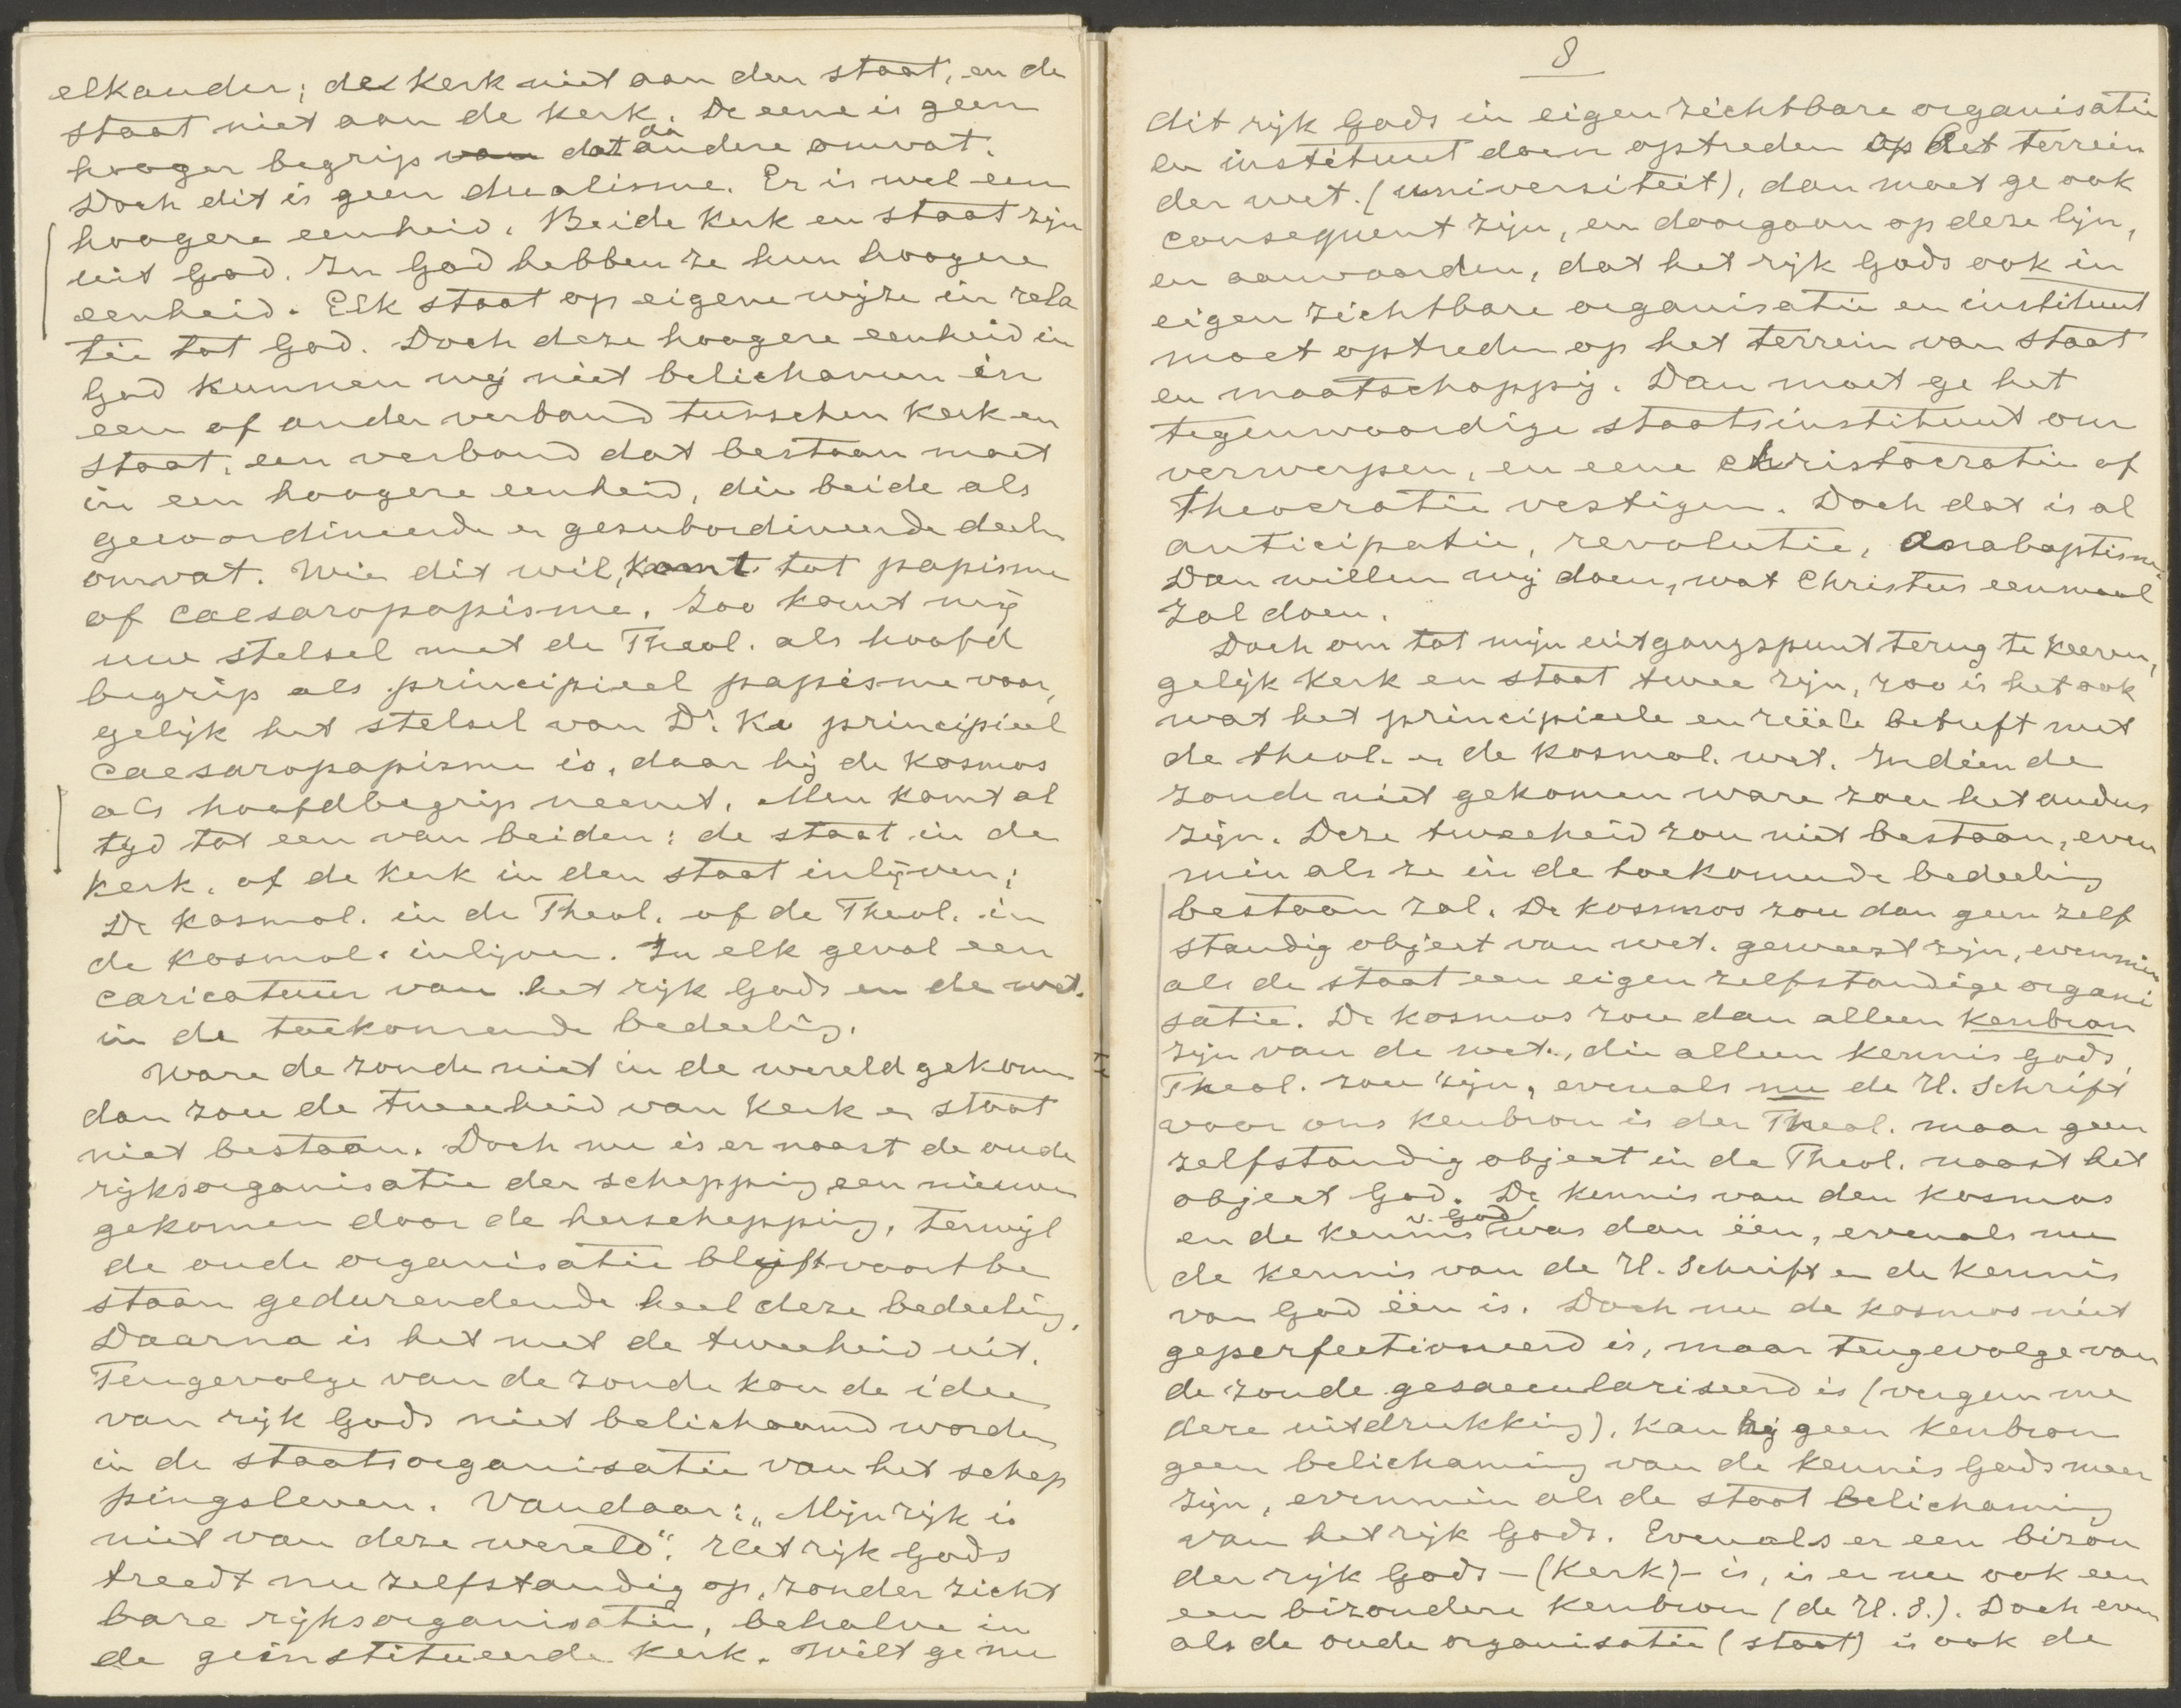 elkander; de kerk niet aan den staat, en de
staat niet aan de kerk. De eene is geen
hooger begrip van dat dà andere omvat.
Doch dit is geen dualisme. Er is wel een
hoogere eenheid. Beide kerk en staat zijn
uit God. In God hebben ze hun hoogere
eenheid. Elk staat op eigene wijze in rela
tie tot God. Doch deze hoogere eenheid in
God kunnen wij niet belichamen in
een of ander verband tusschen kerk en
staat, een verband dat bestaan moet
in een hoogere eenheid, die beide als
gecoordineerde en gesubordineerde deelen
omvat. Wie dit wil, komt tot papisme
of caesaropapisme. Zoo komt mij
uw stelsel met de Theol. als hoofd
begrip als principieel papisme voor,
gelijk het stelsel van Dr. Ku principieel
caesaropapisme is, daar hij de kosmos
als hoofdbegrip neemt. Men komt al
tyd tot een van beiden: de staat in de
kerk, of de kerk in den staat inlijven;
De kosmol. in de Theol. of de Theol. in
de kosmol. inlijven. In elk geval een
caricatuur van het rijk Gods en de wet.
in de toekomende bedeeling.
Ware de zonde niet in de wereld gekomen
dan zou de tweeheid van kerk en staat
niet bestaan. Doch nu is er naast de oude
rijksorganisatie der schepping een nieuwe
gekomen door de herschepping, terwijl
de oude organisatie blijft voortbe
staan gedurendende heel deze bedeeling.
Daarna is het met de tweeheid uit.
Tengevolge van de zonde kon de idee
van rijk Gods niet belichaamd worden
in de staatsorganisatie van het schep
pingsleven. Vandaar: „Mijn rijk is
niet van deze wereld". Het rijk Gods
treedt nu zelfstandig op, zonder zicht
bare rijksorganisatie, behalve in
de geïnstitueerde kerk. Wilt ge nu
8
dit rijk Gods in eigen zichtbare organisatie
en instituut doen optreden op het terrein
der wet. (universiteit), dan moet ge ook
consequent zijn, en doorgaan op deze lijn,
en aanvaarden, dat het rijk Gods ook in
eigen zichtbare organisatie en instituut
moet optreden op het terrein van staat
en maatschappij. Dan moet ge het
tegenwoordige staatsinstituut om
verwerpen, en eene christocratie of
theocratie vestigen. Doch dat is al
anticipatie, revolutie, Anabaptisme.
Dan willen wij doen, wat Christus eenmaal
zal doen.
Doch om tot mijn uitgangspunt terug te keeren,
gelijk kerk en staat twee zijn, zoo is het ook
wat het principieele en reëele betreft met
de theol. en de kosmol. wet. Indien de
zonde niet gekomen ware zou het anders
zijn. Deze tweeheid zou niet bestaan, even
min als ze in de toekomende bedeeling
bestaan zal. De kosmos zou dan geen zelf
standig object van wet. geweest zijn, evenmin
als de staat een eigen zelfstandige organi
satie. De kosmos zou dan alleen kenbron
zijn van de wet., die alleen kennis Gods,
Theol. zou zijn, evenals nu de H. Schrift
voor ons kenbron is der Theol. maar geen
zelfstandig object in de Theol. naast het
object God. De kennis van den kosmos
en de kennis v. God was dan één, evenals nu
de kennis van de H. Schrift en de kennis
van God één is. Doch nu de kosmos niet
geperfectioneerd is, maar tengevolge van
de zonde gesaeculariseerd is (vergun me
deze uitdrukking), kan hij geen kenbron
geen belichaming van de kennis Gods meer
zijn, evenmin als de staat belichaming
van het rijk Gods. Evenals er een bizon
der rijk Gods - (Kerk) - is, is er nu ook een
een bizondere kenbron (de H. S.). Doch even
als de oude organisatie (staat) is ook de